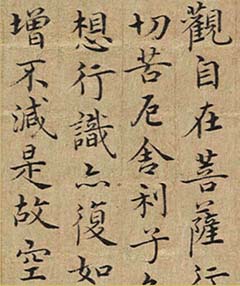 觀自在菩薩行
切苦厄舍利子
想行識亦復如
增不減是故空